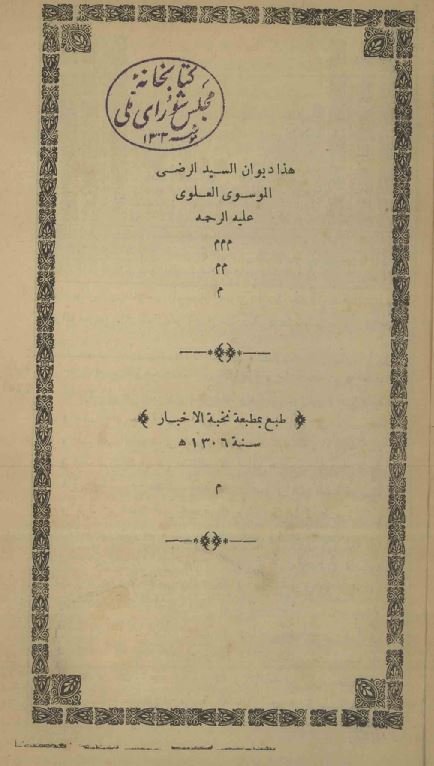 کتابخانهٔ
مجلس شورای ملی
١٣٠٢
هذا ديوان السيد الرضى
الموسوى العلوى
عليه الرحمه
م م م
م م
م
طبع بمطبعة نخبة الاخبار
سنة ١٣٠٦ ه
م